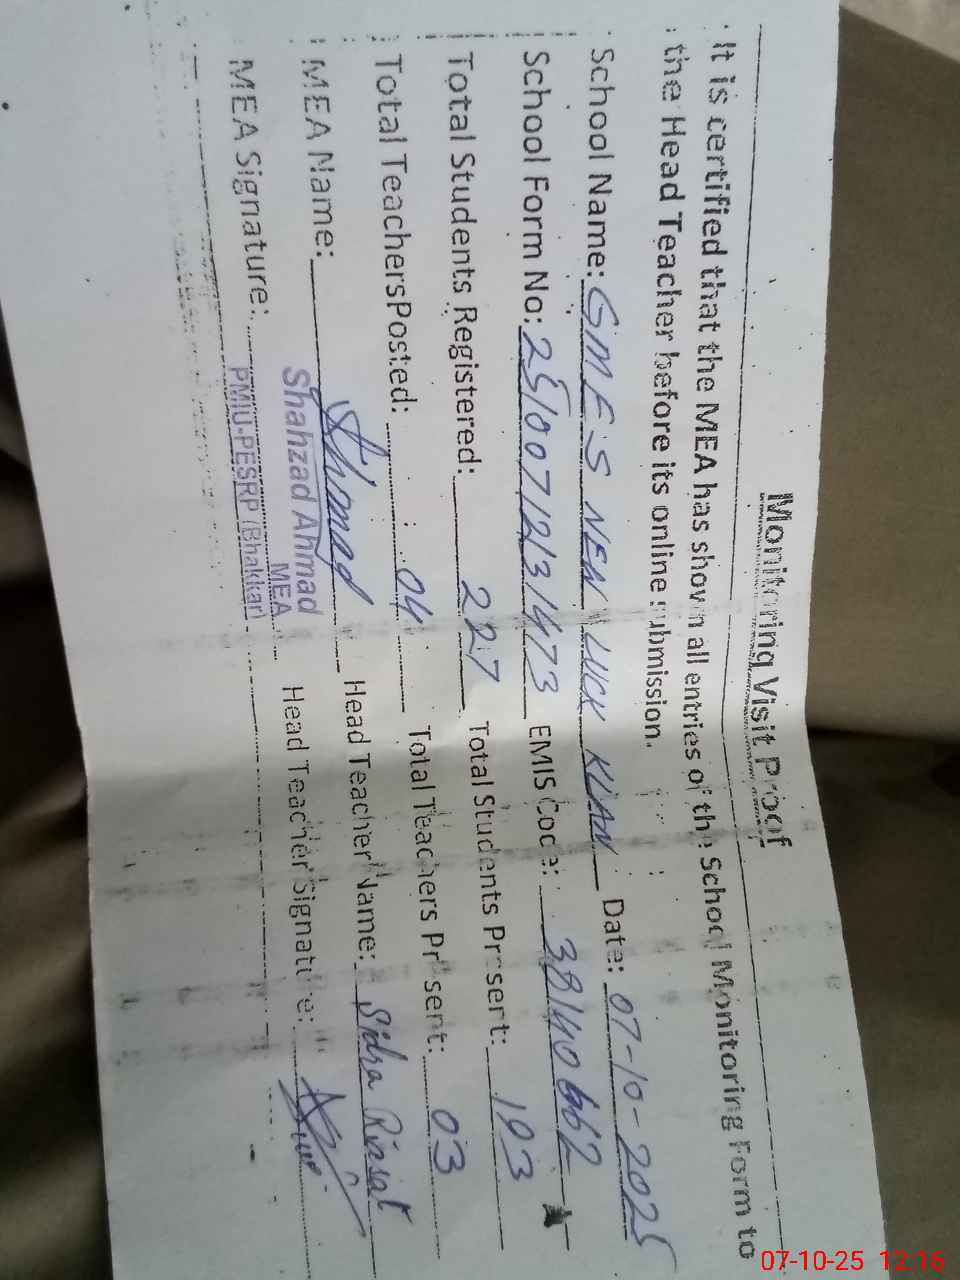 Monitoring Visit Proof
It is certified that the MEA has shown all entries of the School Monitoring Form to
the Head Teacher before its online submission.
School Name: GMES NEW LUCK KLAN Date: 07-10-2025
School Form No: 25100712131473 EMIS Code: 38140662
Total Students Registered: 227 Total Students Present: 193
Total Teachers Posted: 04 Total Teachers Present: 03
MEA Name: Ahmad Head Teacher Name: Sidra
Shahzad Ahmad
MEA
MEA Signature: PMIU-PESRP (Bhakkar) Head Teacher Signature:
07-10-25 12:16